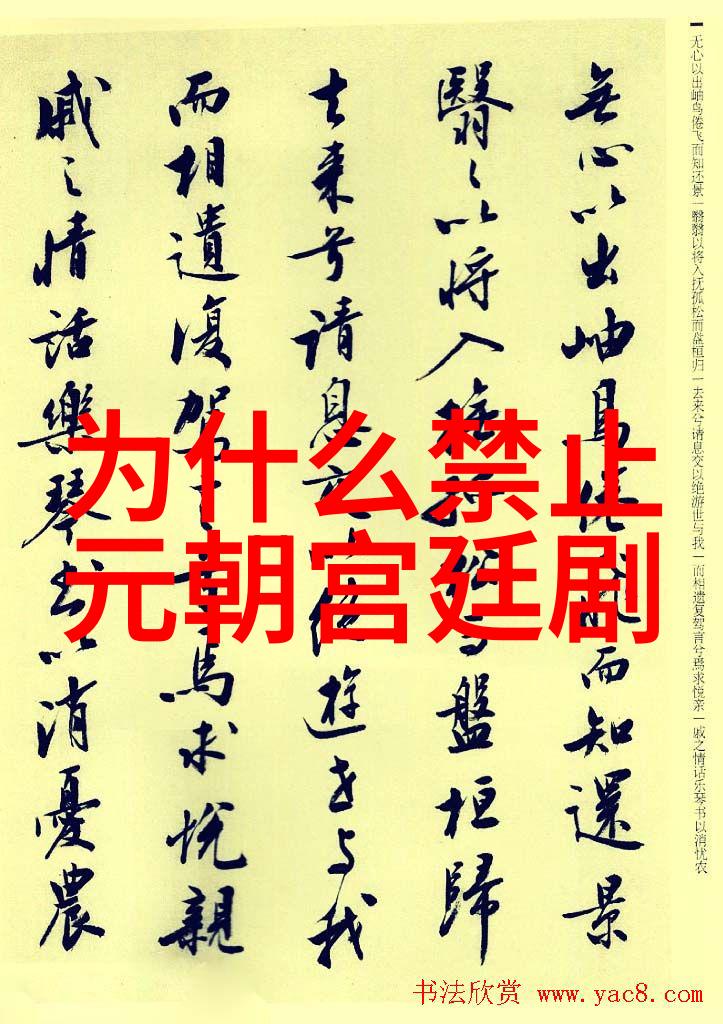 无心以出岫鸟倦飞而知还景一翳翳以将入抚孤松而盘桓归一去来兮请息交以绝游世与我一而相遗复驾言兮焉求悦亲一戚之情话乐琴书以消忧农
無心以出岫鳥倦飛而知還景
翳々以将入撫孤松而盤桓歸
去来兮請息交以絕遊世与我
而相遺復駕言兮焉求悅親
戚々情話樂琴書以消憂農
为什么禁止
元朝宫廷剧
书法欣赏 www.yac8.com